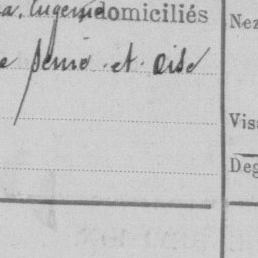 a, Eugenie domiciliés
Seine-et-Oise
Nez
Vis
Deg